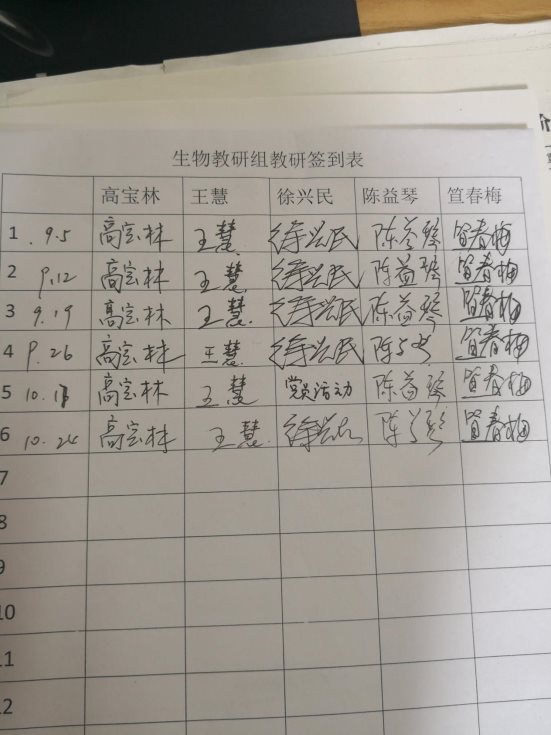 生物教研组教研签到表
高宝林 王慧 徐兴民 陈益琴 笪春梅
1 . 9.5 高宝林 王慧 徐兴民 陈益琴 笪春梅
2 9.12 高宝林 王慧 徐兴民 陈益琴 笪春梅
3 9.19 高宝林 王慧. 徐兴民 陈益琴 笪春梅
4 9.26 高宝林 王慧 徐兴民 陈 笪春梅
5 10. 高宝林 王慧 党员活动 陈益琴 笪春梅
6 10.24 高宝林 王慧. 徐兴民 陈 笪春梅
7
8
9
10
11
12